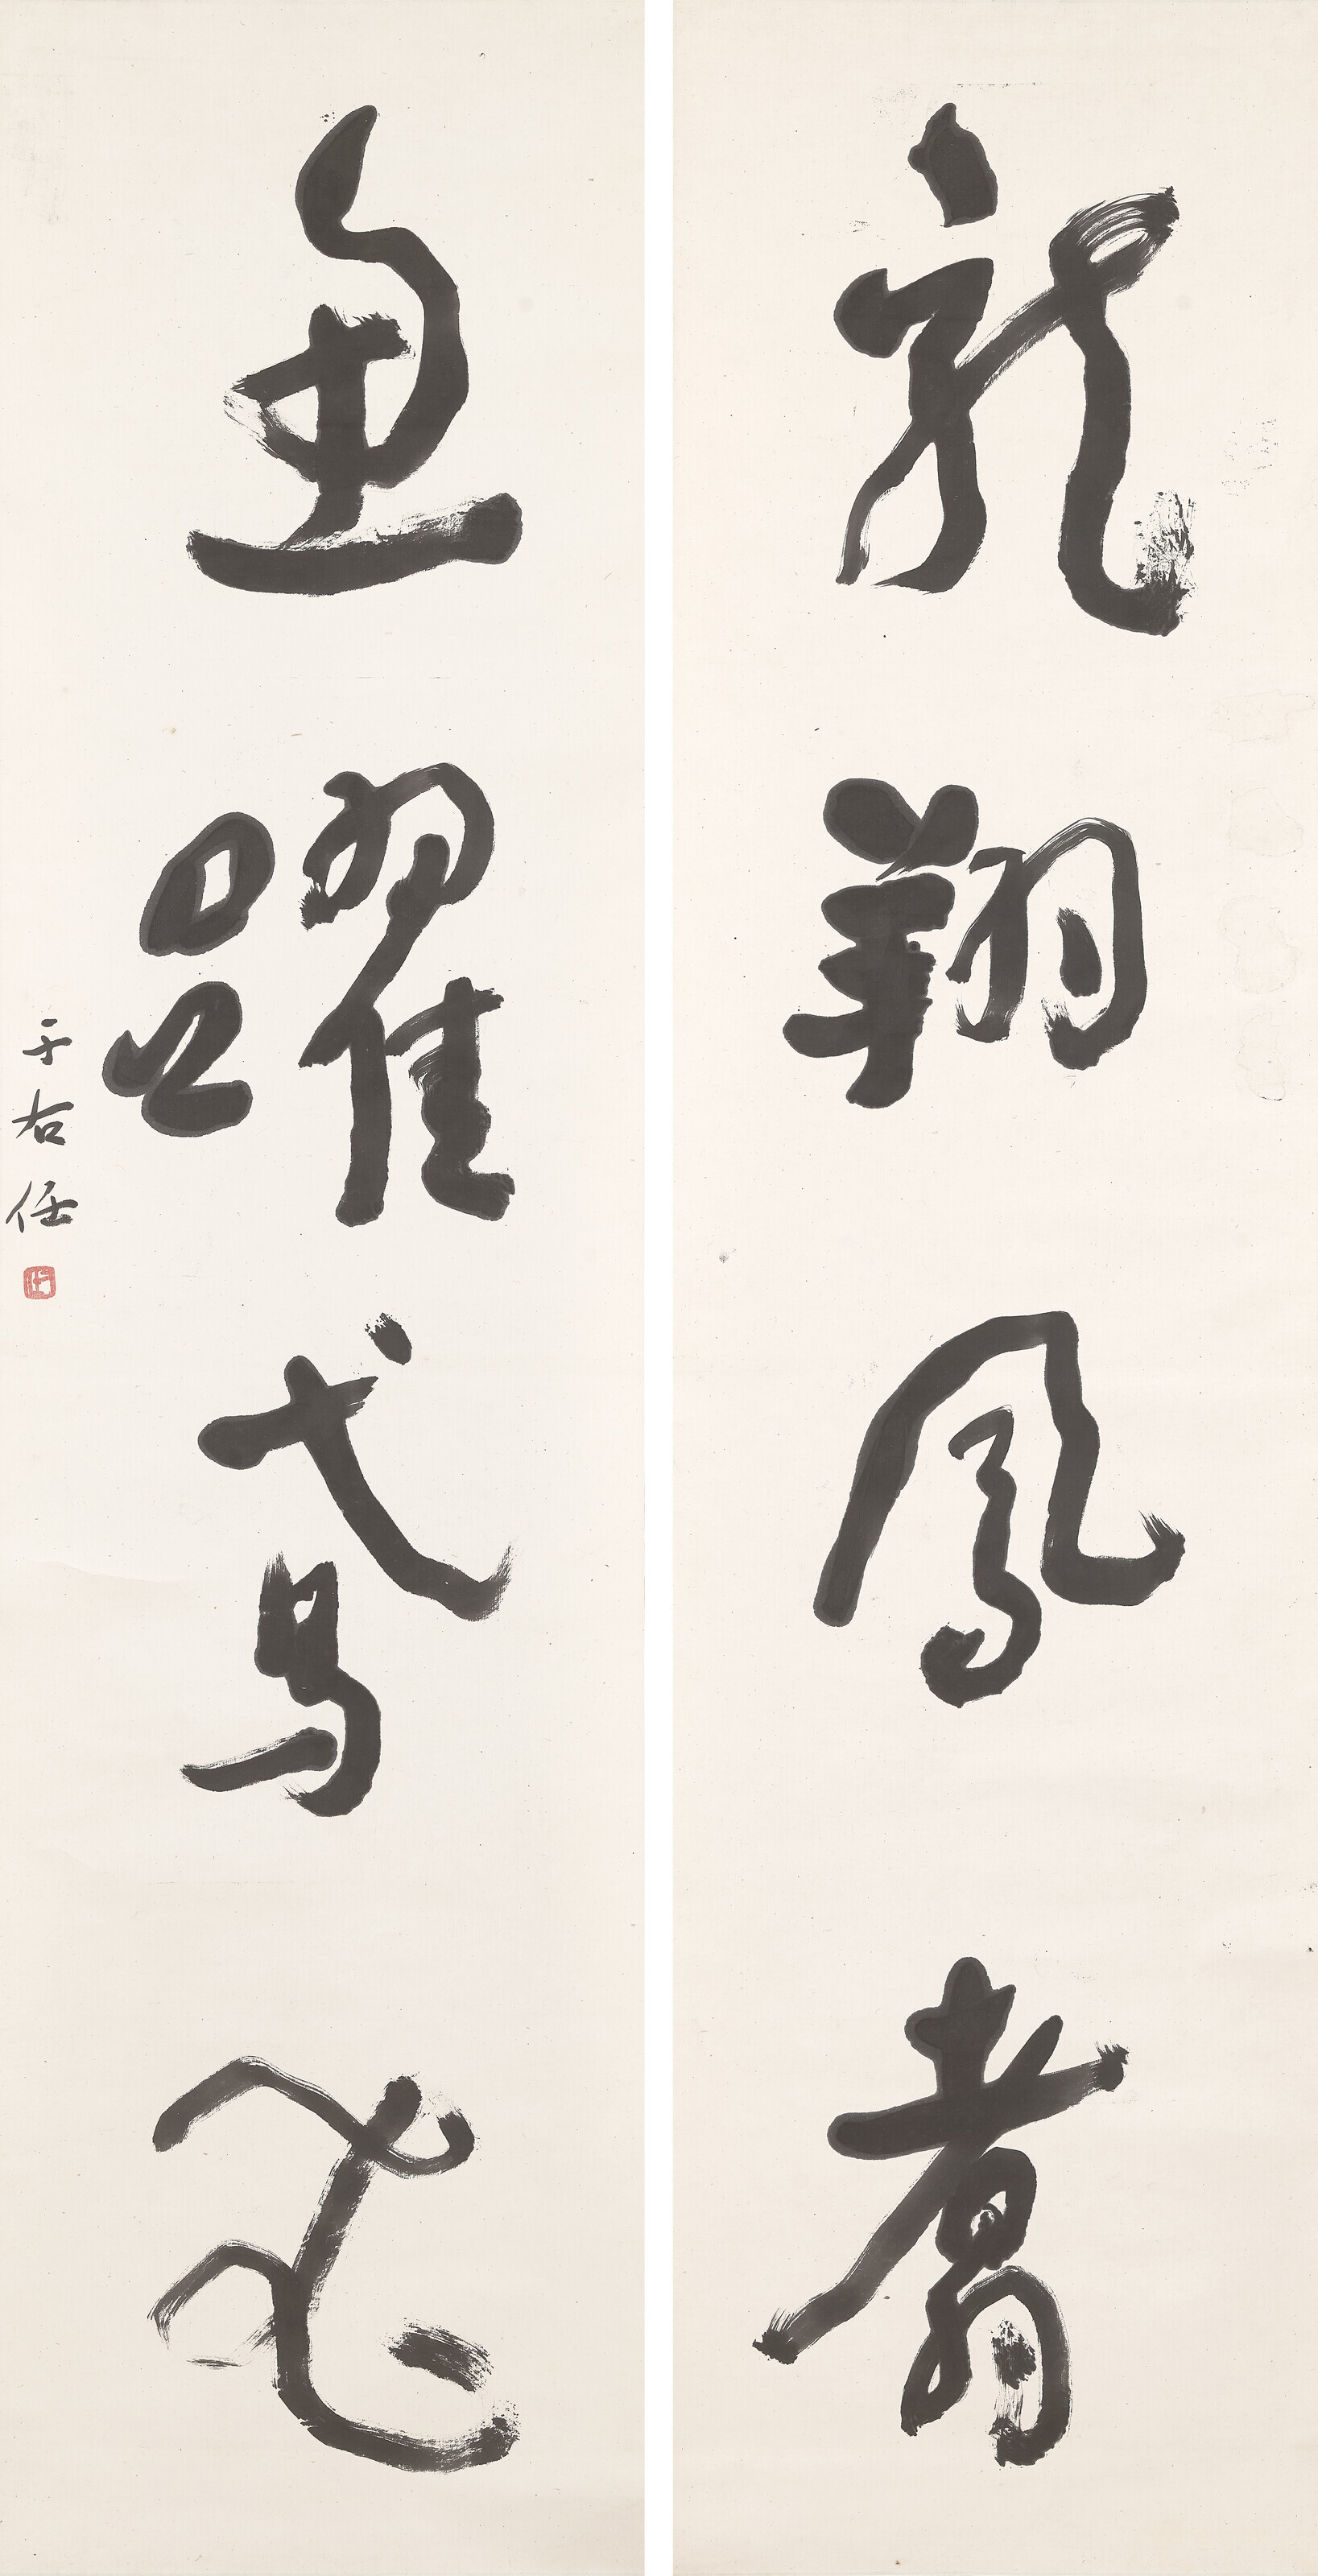 龍翔鳳翥
魚躍鳶飛
于右任